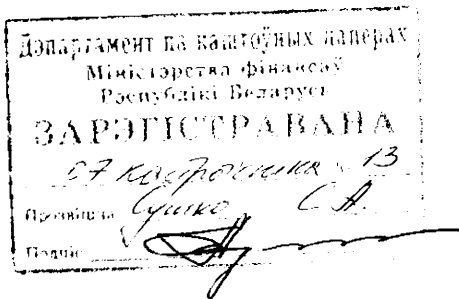 Дэпартамент па каштоўных паперах
Міністэрства фінансаў
Рэспублікі Беларусь
ЗАРЭГІСТРАВАНА
07 кастрычніка 13
Прозвішча Сушко С.А.
Подпіс